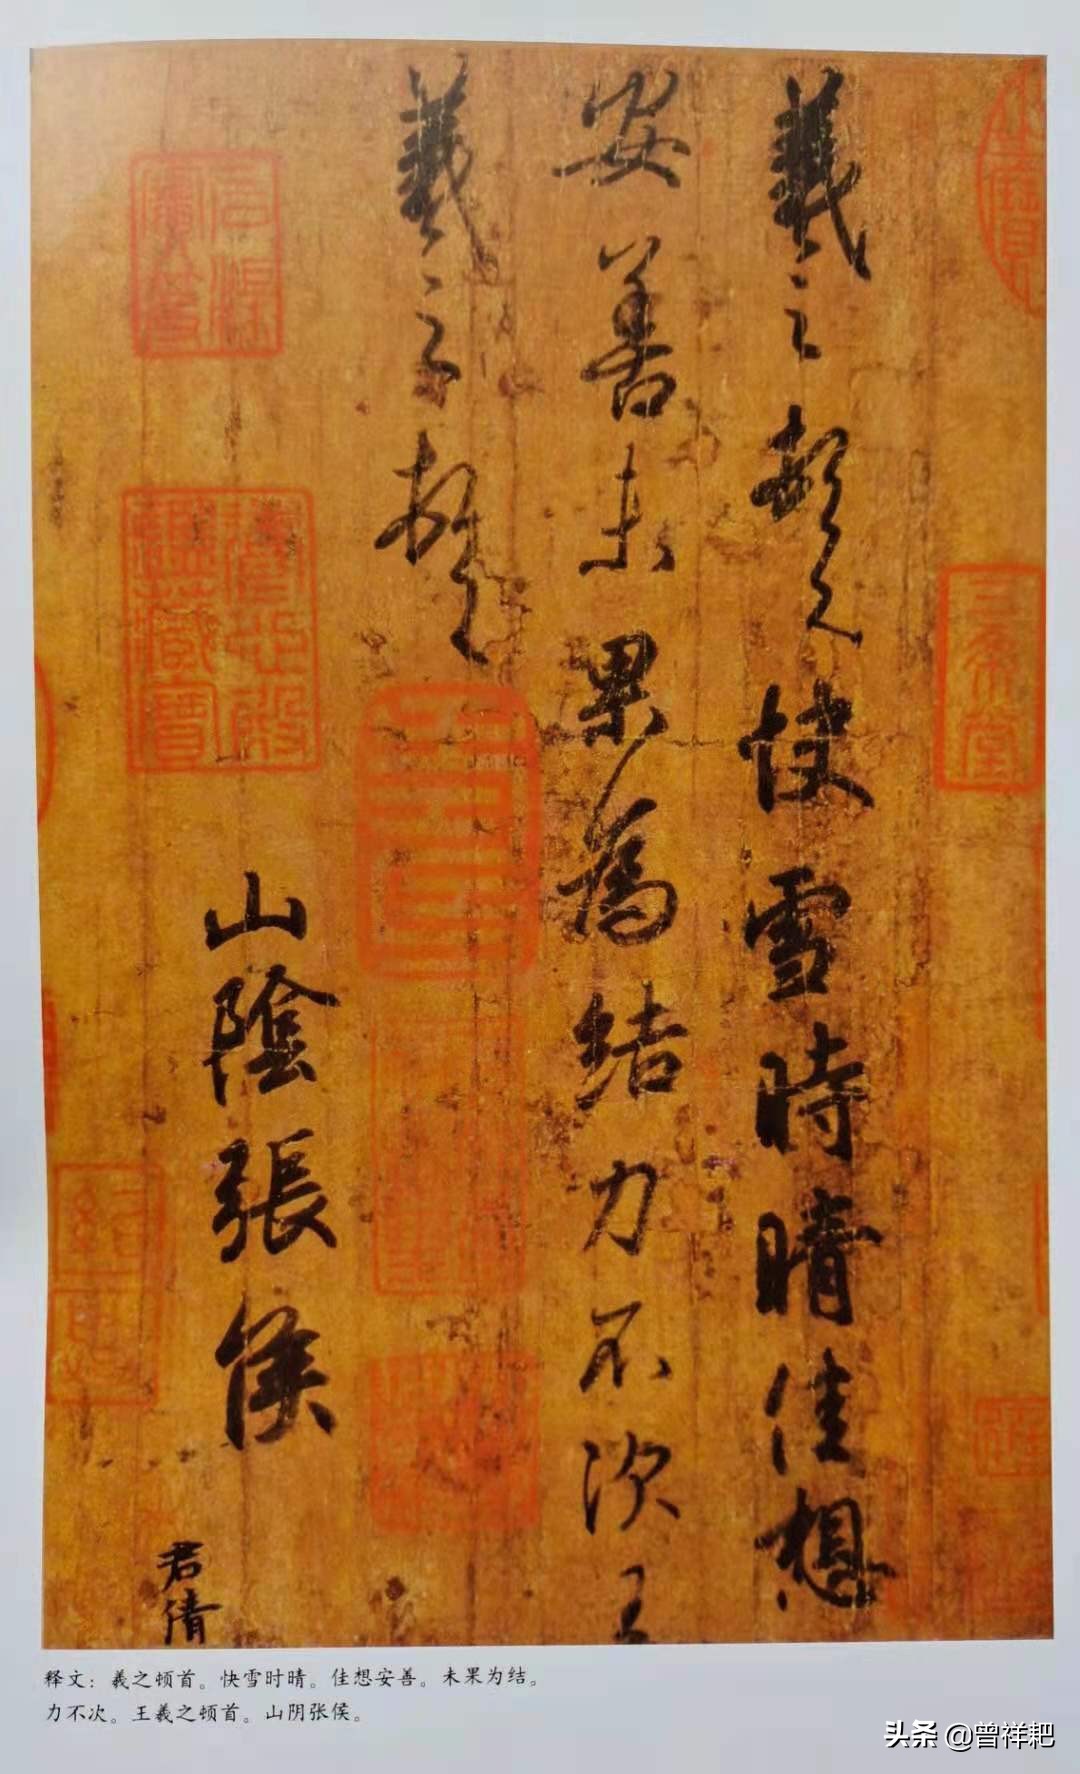 羲之頓首快雪時晴佳想
安善未果為結力不次王
羲之頓首
山陰張侯
君倩
三希堂
養心殿鑑藏寶
释文：羲之顿首。快雪时晴。佳想安善。未果为结。
力不次。王羲之顿首。山阴张侯。
头条 @曾祥耙